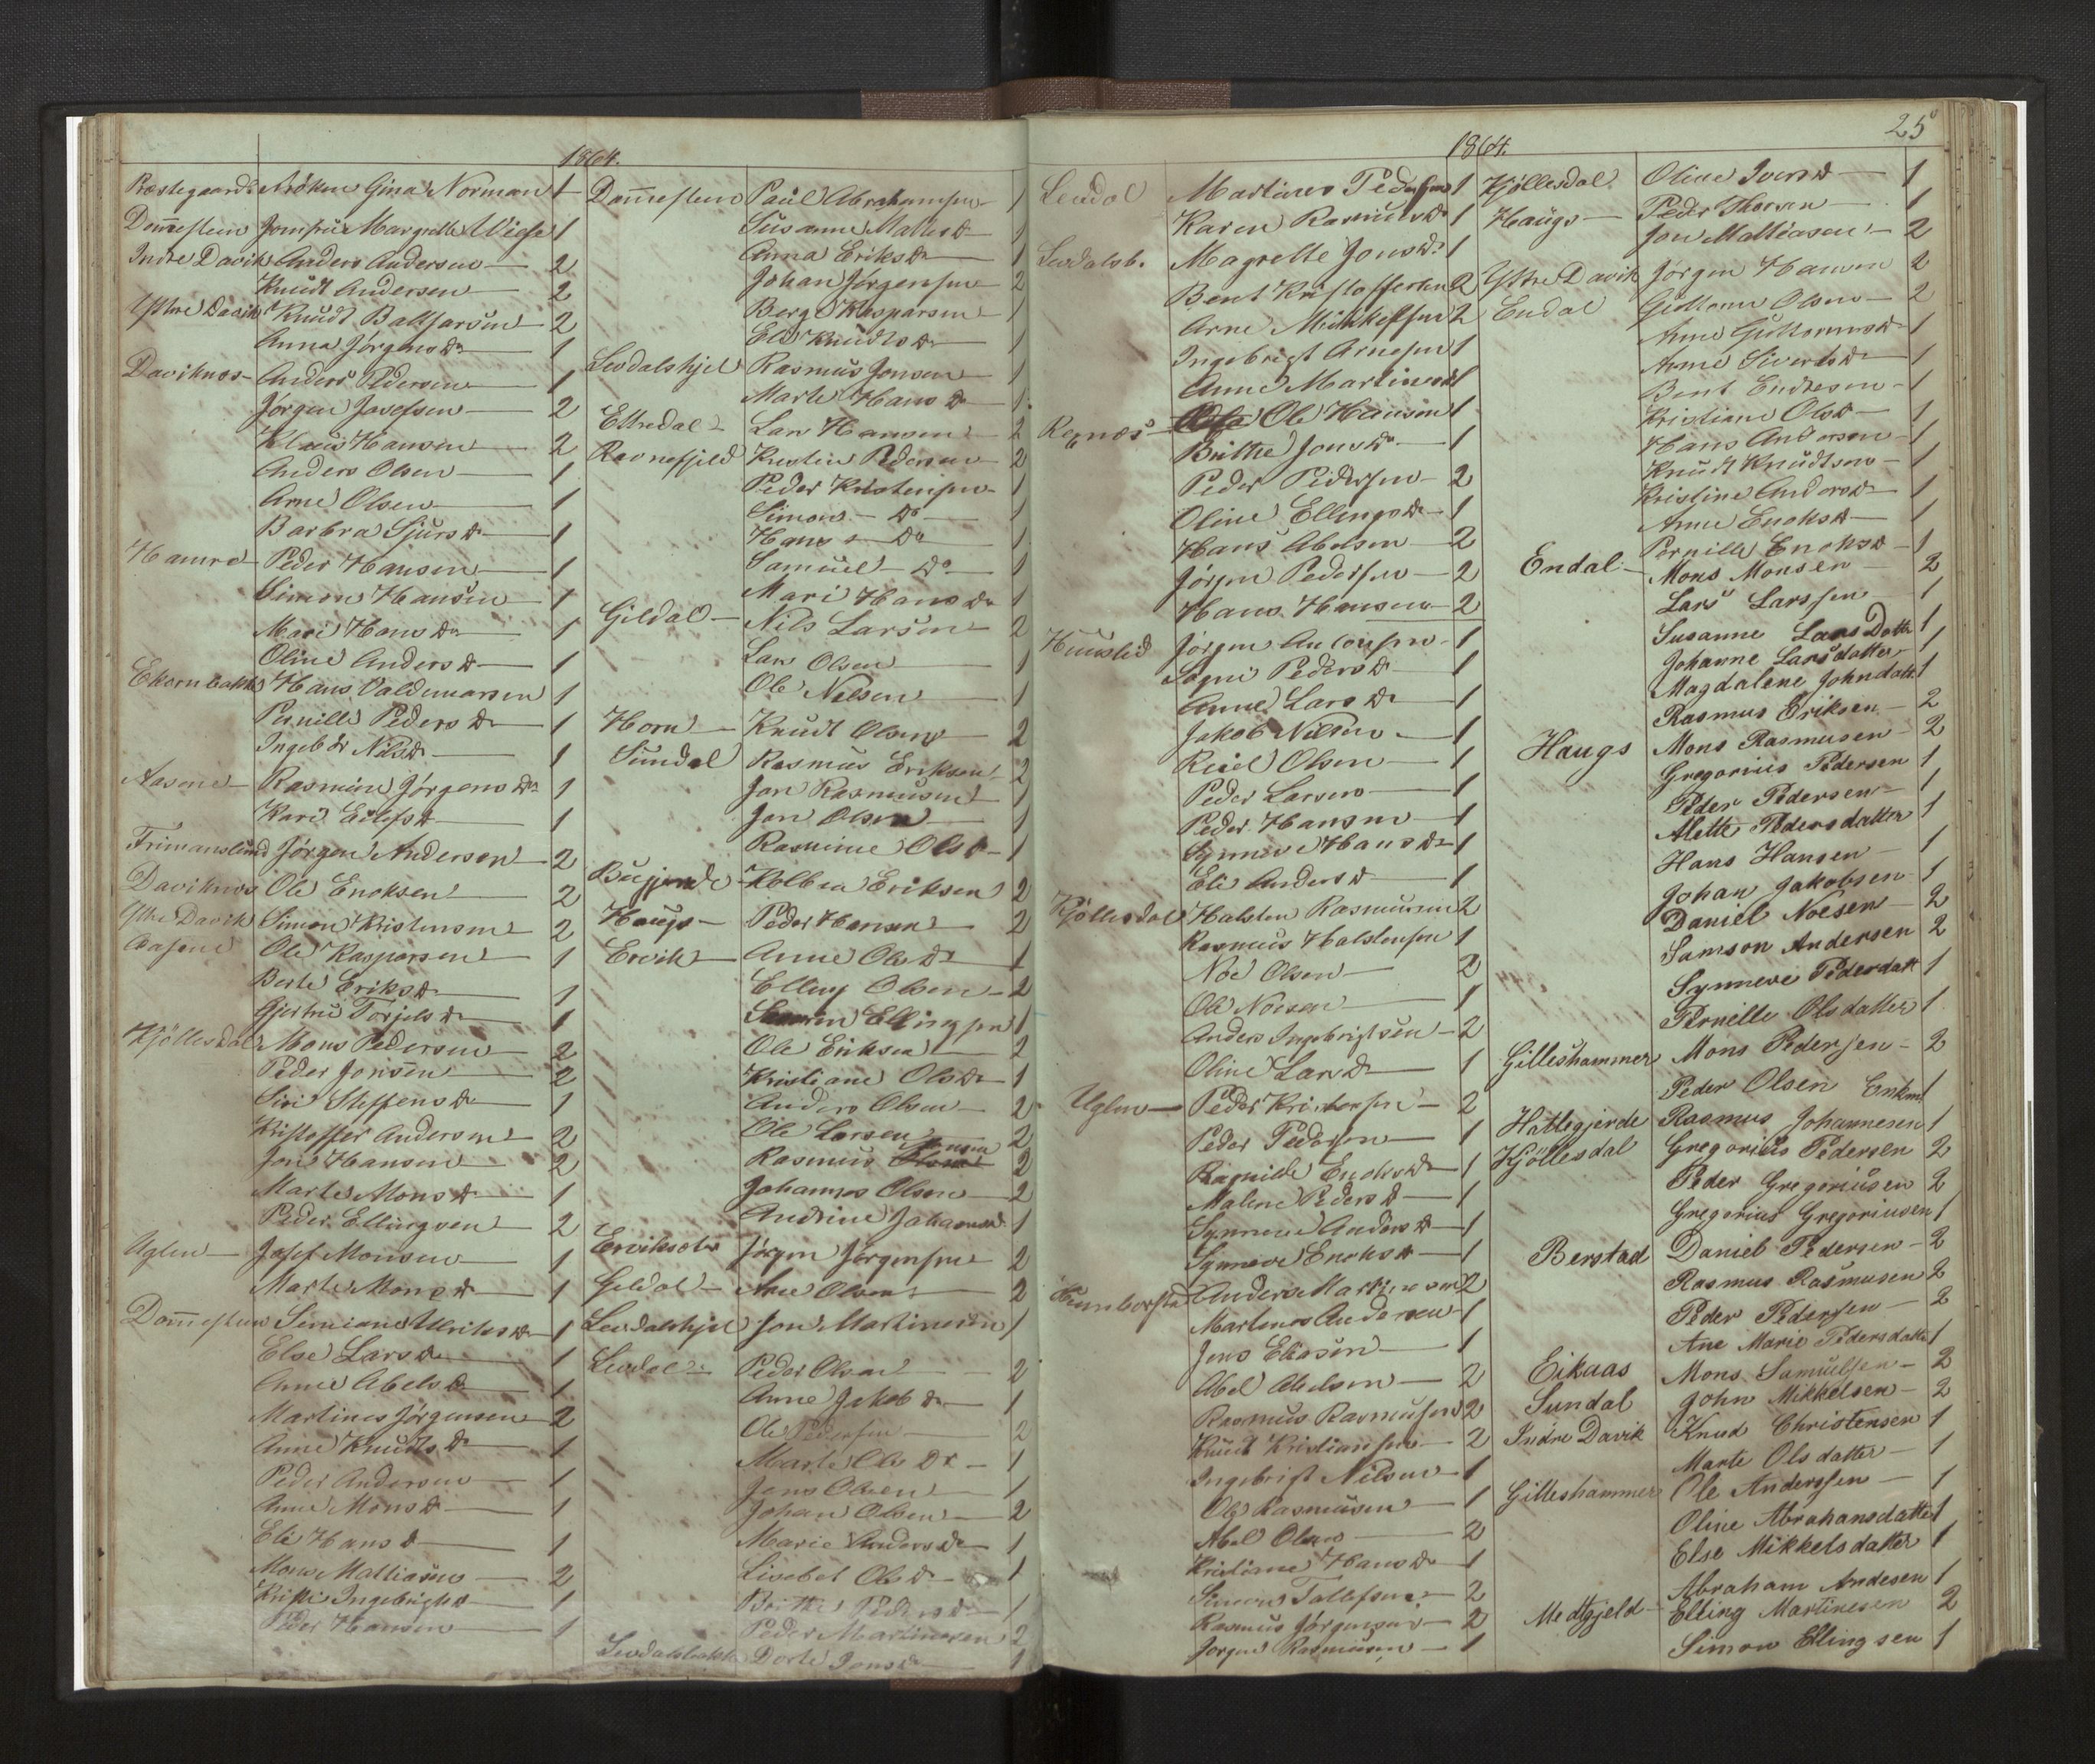 1864.
Præstegaard Frøken Gina Norman 1
Dom̄estein Jomfru Margrethe Wiese 1
Indre Davik Anders Andersen 2
Knudt Andersen 2
Ystre Davik Knudt Baltsarsen 2
Anna Jørgensdr 1
Daviknes Anders Pedersen 1
Jørgen Josefsen 2
Klaus Hansen 2
Anders Olsen 1
Arne Olsen 1
Barbra Sjursdr 1
Hamre Peder Hansen 1
Simon Hansen 1
Mari Hansdr 1
Oline Andersdr 1
Ekornbakke Hans Valdemarsen 1
Pernille Pedersdr 1
Ingebdr Nilsdr 1
Aasene Rasmine Jørgensdr 1
Kari Eilefsdr 1
Frimanslund Jørgen Andersen 2
Daviknes Ole Enoksen 2
Ystre Davik Simon Kristensen 2
Aasene Ole Kasparsen 1
Berte Eriksdr 1
Gjertrud Torjelsdr 1
Kjöllesdal Mons Pedersen 2
Peder Jonsen 2
Siri Steffensdr 1
Kristoffer Andersen 2
Jon Hansen 2
Marte Monsdr 1
Peder Ellingsen 2
Uglen Josef Monsen 1
Marte Monsdr 1
Dom̄estein Simiane Ulriksdr 1
Else Larsdr 1
Anne Abelsdr 1
Martines Jørgensen 2
Anne Knudtsdr 1
Peder Andersen 1
Anne Monsdr 1
Eli Hansdr 1
Mons Mathiasen 2
Kristi Ingebrigtsdr 1
Peder Hansen 1
Dom̄estein Paul Abrahamsen 1
Susanne Mathisdr 1
Anna Eriksdr 1
Johan Jørgensen 2
Berge Kasparsen 1
Eli Knudtsdr 1
Levdalshjel Rasmus Jonsen 1
Marte Hansdr 1
Ettredal Lars Hansen 2
Ravnefjeld Kristen Pedersen 2
Peder Kristensen 1
Simon Do 1
Hans Do 1
Samuel Do 1
Mari Hansdr 1
Gildal Nils Larsen 2
Lars Olsen 1
Ole Nilsen 1
Horn Knudt Olsen 2
Sundal Rasmus Eriksen 2
Jon Rasmusen 1
Jon Olsen 1
Rasmine Olsdr 1
Kolben Eriksen 2
Haugs Peder Hansen 2
Ervik Anne Olsdr 1
Elling Olsen 2
Ellingsen 1
Ole Eriksen 2
Kristiane Olsdr 1
Anders Olsen 2
Ole Larsen 2
Rasmus Hansen 2
Johannes Olsen 2
Andrine Johannesd. 1
Jørgen Jørgensen 2
Gildal Arne Olsen 2
Levdalshjel Jon Martinesen 1
Levdal Peder Olsen 2
Anne Jakobdr 1
Ole Pedersen 2
Marte Olsdr 1
Jens Olsen 1
Johan Olsen 2
Marie Andersdr 1
Lisebet Olsdr 1
Brithe Pedersdr 1
Peder Martinesen 2
Levdalsbakk Dorte Jonsdr 1
25
1864.
Levdal Martines Pedersen 1
Karen Rasmusdr 1
Levdalsb. Magrette Jonsdr 1
Bent Kristoffersen 2
Arne Mikkelsen 2
Ingebrigt Arnesen 1
Anne Martinesdr 1
Rexnæs Ole Hansen 1
Brithe Jonsdr 1
Peder Pedersen 2
Oline Ellingsdr 1
Hans Abelsen 2
Jørgen Pedersen 2
Hans Hansen 2
Huuslid Jørgen 1
Pedersdr 1
Anne Larsdr 1
Jakob Nilsen 1
Olsen 1
Peder Larsen 1
Peder Hansen 1
Synneve Hansdr 1
Eli Andersdr 1
Kjöllesdal Halsten Rasmusen 2
Rasmus Halstensen 1
Noe Olsen 2
Ole Noesen 1
Anders Ingebrigtsen 2
Oline Larsdr 1
Uglen Peder Kristensen 2
Peder Pedersen 1
Ragnilde Enoksdr 1
Malene Pedersdr 1
Synneve Andersdr 1
Synneve Enoksdr 1
Anders Martinesen 2
Martines Andersen 1
Jens Eliasen 1
Abel Abelsen 2
Rasmus Rasmusen 2
Knudt Kristiansen 2
Ingebrigt Nilsen 1
Ole Rasmusen 1
Abel Olsen 2
Kristine Hansdr 1
Simon Tollefsen 2
Rasmus Jørgensen 2
Jørgen Rasmusen 1
Kjöllesdal Oline Iversdr 1
Haugs Peder Thorsen 1
Jon Mathiasen 2
Ystre Davik Jørgen Hansen 2
Endal Guttorm Olsen 2
Anne Guttormsdr 1
Anne Sivertsdr 1
Bent Endresen 1
Kristiane Olsdr 1
Hans Andersen 1
Knudt Knudtsen 1
Kristine Andersdr 1
Anne Enoksdr 1
Pernille Enoksdr 1
Endal Mons Monsen 2
Lars Larssen 1
Susanne Lars Dotter 1
Johanne Larsdatter 1
Magdalene Johndatt. 1
Rasmus Eriksen 2
Haugs Mons Rasmusen 2
Gregorius Pedersen 1
Peder Pedersen 1
Alette Pedersdatter 1
Hans Hansen 1
Johan Jakobsen 1
Daniel Noesen 2
Samson Andersen 2
Synneve Pedersdatt 1
Pernille Olsdatter 1
Gilleshammer Mons Pedersen 2
Peder Olsen Enkm. 1
Hattegjerde Rasmus Johannesen 1
Kjöllesdal Gregorius Pedersen 2
Peder Gregoriusen 2
Gregorius Gregoriusen 1
Berstad Daniel Pedersen 2
Rasmus Rasmusen 2
Peder Pedersen 2
Ane Marie Pedersdatter 1
Eikaas Mons Samuelsen 2
Sundal John Mikkelsen 2
Indre Davik Knud Christensen 1
Marte Olsdatter 1
Gilleshammer Ole Anderssen 1
Oline Abrahamsdatter 1
Else Mikkelsdatter 1
Abraham Andesen 1
Medtgjeld Elling Martinesen 2
Simon Ellingsen 1